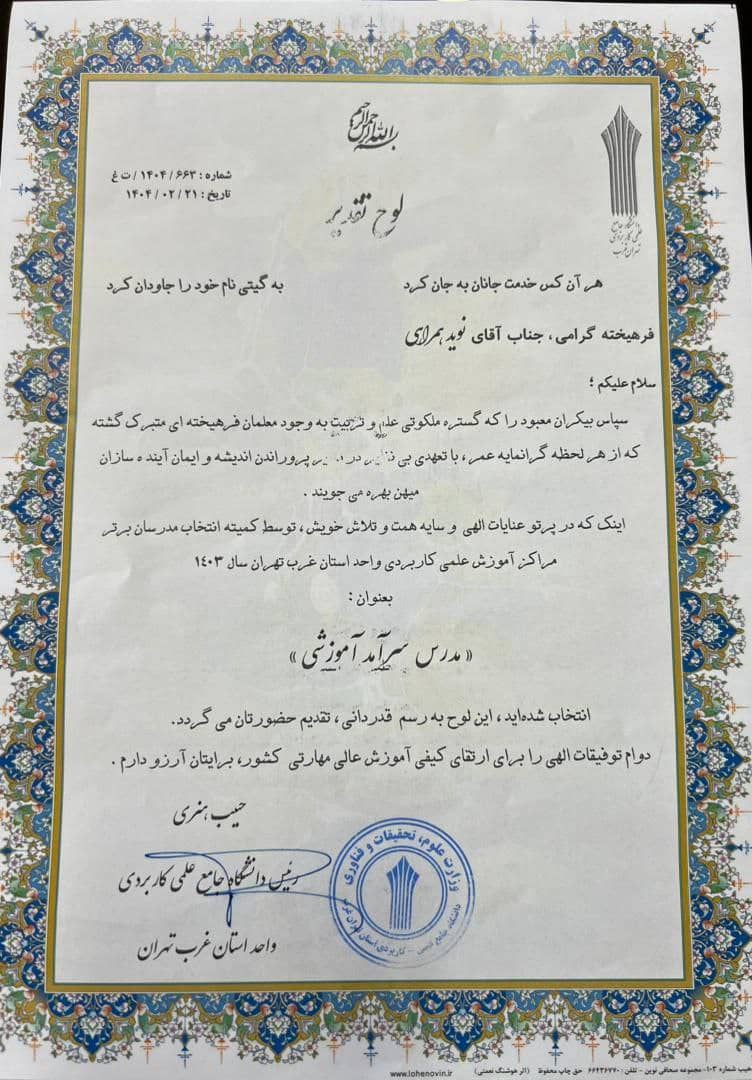 بسم الله الرحمن الرحیم
شماره : ۶۶۳ / ۱۴۰۴ / ت غ
تاریخ : ۲۱ / ۰۲ / ۱۴۰۴
دانشگاه جامع
علمی کاربردی
تهران غرب
لوح تقدیر
هر آن کس خدمت جانان به جان کرد به گیتی نام خود را جاودان کرد
فرهیخته گرامی، جناب آقای نوید همراهی
سلام علیکم ؛
سپاس بیکران معبود را که گستره ملکوتی علم و تربیت به وجود معلمان فرهیخته ای متبرک گشته
که از هر لحظه گرانمایه عمر، با تعهدی بی در پروراندن اندیشه و ایمان آینده سازان
میهن بهره می جویند .
اینک که در پرتو عنایات الهی و سایه همت و تلاش خویش، توسط کمیته انتخاب مدرسان برتر
مراکز آموزش علمی کاربردی واحد استان غرب تهران سال ۱۴۰۳
بعنوان :
« مدرس سرآمد آموزشی »
انتخاب شده‌اید، این لوح به رسم قدردانی، تقدیم حضورتان می گردد.
دوام توفیقات الهی را برای ارتقای کیفی آموزش عالی مهارتی کشور، برایتان آرزو دارم .
حبیب هنری
رئیس دانشگاه جامع علمی کاربردی
واحد استان غرب تهران
وزارت علوم، تحقیقات و فناوری
دانشگاه جامع علمی - کاربردی استان تهران غرب
جیب شماره ۱۰۳- مجموعه صحافی نوین - تلفن : ۶۶۴۳۶۷۷۰ حق چاپ محفوظ (اثر هوشنگ نعمتی) www.lohenovin.ir